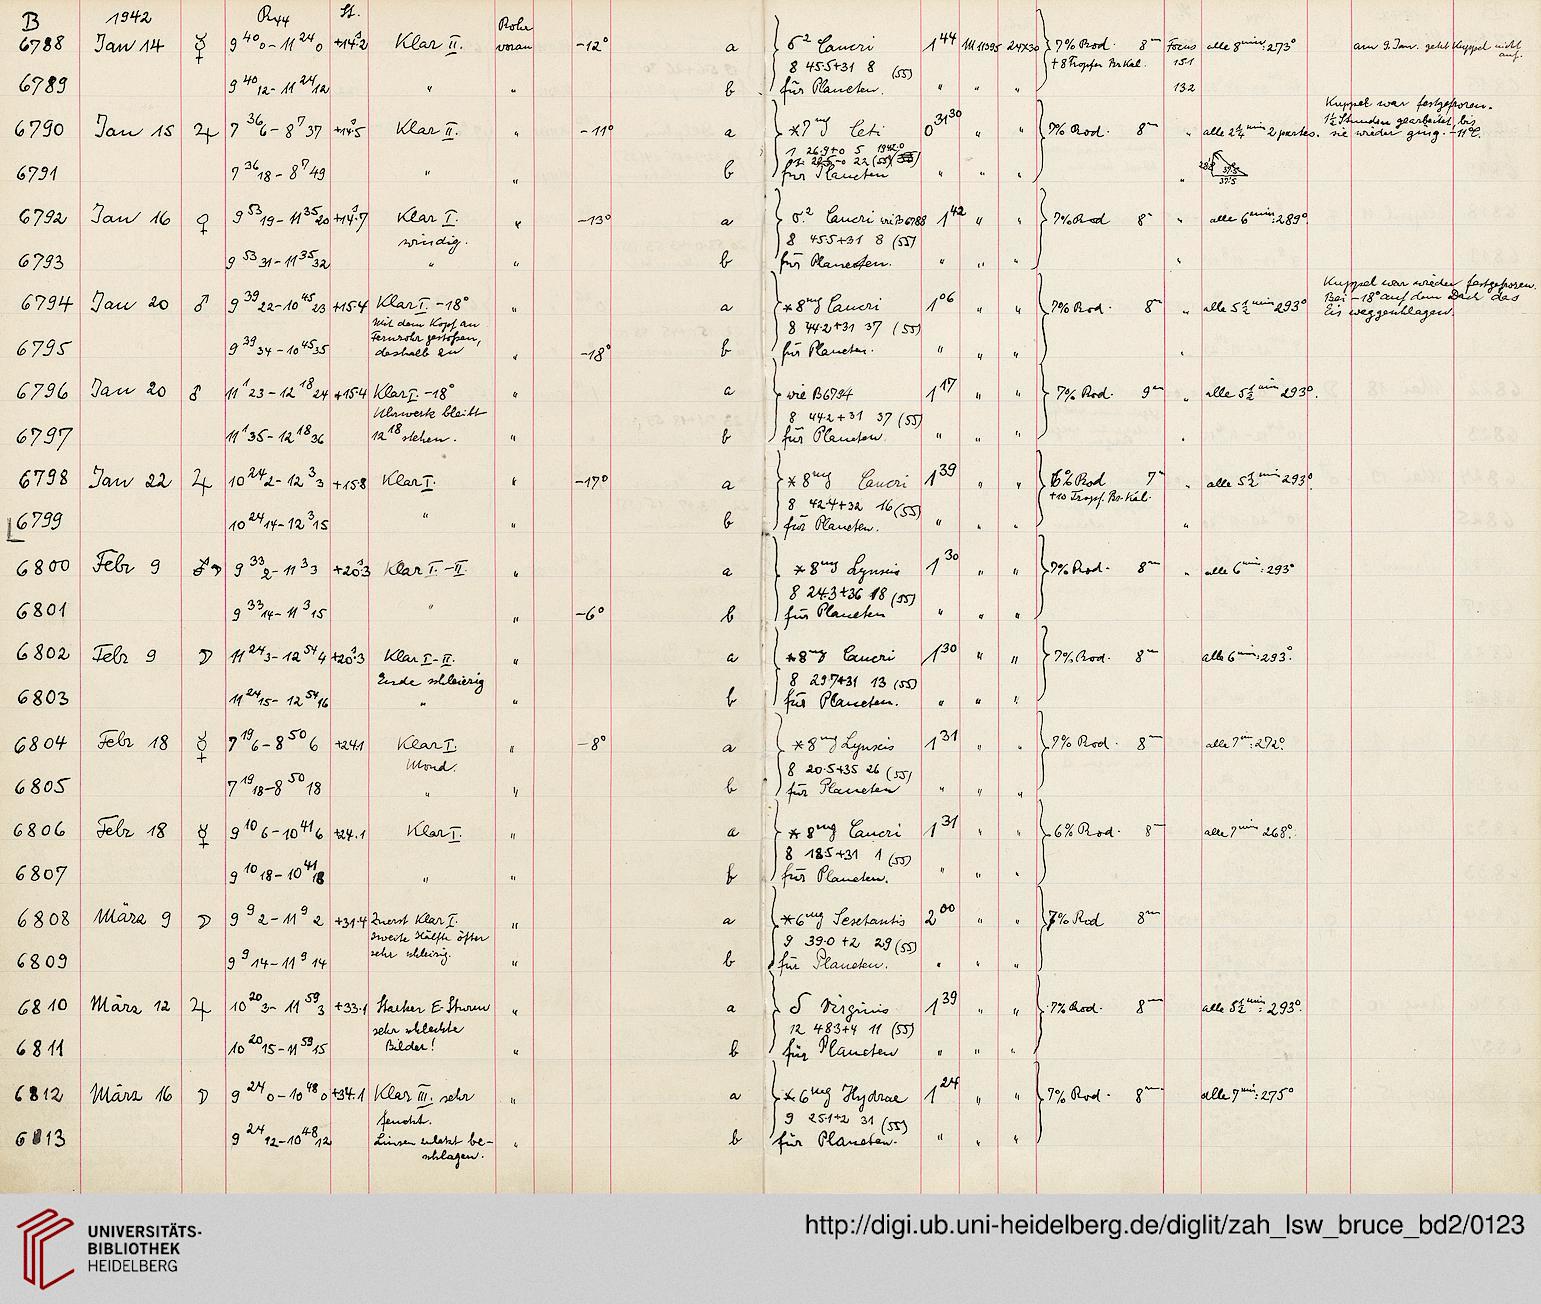 B 1942 R44 St. Rohr voran
6788 Jan 14 ☿ 9 40 0 – 11 24 0 +14.2 Klar II. −12° a σ² Cancri 1 44 M 11395 24x30 7% Rod. 8m Focus alle 8 min: 273° am 9. Jan. geht Kuppel nicht auf.
8 45.5+31 8 (55) +8 Tropfen Br. Kal. 151
6789 9 40 12 – 11 24 12 " " b für Planeten. " " " 132
Kuppel war festgefroren.
6790 Jan 15 ♃ 7 36 6 – 8 7 37 +14.5 Klar II. " −11° a *7mg Ceti 0 31 30 " " 7% Rod. 8m " alle 2¼ min 2 partes. 1½ Stunden gearbeitet bis sie wieder ging. −11°C.
1 26.9+0 5 1942.0
6791 7 36 18 – 8 7 49 " " b für Planeten " " " " 37.5
37.5
6792 Jan 16 ♀ 9 53 19 – 11 35 20 +14.7 Klar I. " −13° a σ² Cancri wie B6788 1 42 " " 7% Rod 8m " alle 6 min: 289°.
windig. 8 45.5+31 8 (55)
6793 9 53 31 – 11 35 32 " " b für Planeten. " " " "
Kuppel war wieder festgefroren.
6794 Jan 20 ♂ 9 39 22 – 10 45 23 +15.4 Klar I. −18° " a *8mg Cancri 1 06 " " 7% Rod. 8m " alle 5½ min 293° Bei −18° auf dem Dach das Eis weggeschlagen.
Mit dem Kopf an 8 44.2+31 37 (55)
Fernrohr gestoßen,
6795 9 39 34 – 10 45 35 deshalb zu " −18° b für Planeten. " " " "
6796 Jan 20 ♂ 11 1 23 – 12 18 24 +15.4 Klar I. −18° " a wie B6794 1 17 " " 7% Rod. 9m " alle 5½ min 293°.
Uhrwerk bleibt 8 44.2+31 37 (55)
6797 11 1 35 – 12 18 36 12 18 stehen. " b für Planeten. " " " "
6798 Jan 22 ♃ 10 24 2 – 12 3 3 +15.8 Klar I. " −17° a *8mg Cancri 1 39 " " 6% Rod 7m " alle 5½ min 293°.
8 42.4+32 16 (55) +10 Tropf. Br. Kal.
6799 10 24 14 – 12 3 15 " b für Planeten. " " " "
6800 Febr 9 ☽ 9 33 2 – 11 3 3 +20.3 Klar I.–II " a *8mg Lyncis 1 30 " " 7% Rod. 8m " alle 6 min: 293°
8 24.3+36 18 (55)
6801 9 33 14 – 11 3 15 " " −6° b für Planeten " " "
6802 Febr 9 ☽ 11 24 3 – 12 54 4 +20.3 Klar I–II. " a *8mg Cancri 1 30 " " 7% Rod. 8m alle 6 min: 293°.
Ende schleierig 8 29.7+31 13 (55)
6803 11 24 15 – 12 54 16 " " b für Planeten. " " "
6804 Febr 18 ☿ 7 19 6 – 8 50 6 +24.1 Klar I. " −8° a *8mg Lyncis 1 31 " " 7% Rod. 8m alle 7m: 272°.
Mond. 8 20.5+35 26 (55)
6805 7 19 18 – 8 50 18 " " b für Planeten " " "
6806 Febr 18 ☿ 9 10 6 – 10 41 6 +24.1 Klar I. " a *8mg Cancri 1 31 " " 6% Rod. 8m alle 7 min 268°.
8 18.5+31 1 (55)
6807 9 10 18 – 10 41 18 " " b für Planeten. " " "
6808 März 9 ☽ 9 9 2 – 11 9 2 +31.4 Zuerst Klar I. " a *6mg Sextantis 2 00 " " 7% Rod 8m
zweite Hälfte öfter 9 39.0 +2 29 (55)
6809 9 9 14 – 11 9 14 sehr schleirig. " b für Planeten. " " "
6810 März 12 ♃ 10 20 3 – 11 59 3 +33.1 Starker E-Sturm " a δ Virginis 1 39 " " 7% Rod. 8m alle 5½ min: 293°.
sehr schlechte 12 48.3+4 11 (55)
6811 10 20 15 – 11 59 15 Bilder! " b für Planeten " " "
6812 März 16 ☽ 9 24 0 – 10 48 0 +34.1 Klar III. sehr " a *6mg Hydrae 1 24 " " 7% Rod. 8m alle 7 min: 275°
feucht. 9 25.1+2 31 (55)
6813 9 24 12 – 10 48 12 Linsen zuletzt be- " b für Planeten. " " "
schlagen.
UNIVERSITÄTS-
BIBLIOTHEK
HEIDELBERG
http://digi.ub.uni-heidelberg.de/diglit/zah_lsw_bruce_bd2/0123